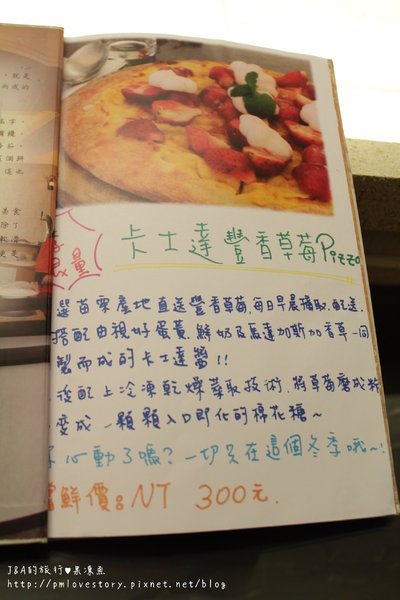 就是
美食
除了
更是
限量
卡士達豐香草莓Pizza
選苗栗產地直送豐香草莓,每日早晨摘取.配送,
搭配由親好蛋黃.鮮奶及馬達加斯加香草一同
製而成的卡士達醬!!
後配上冷凍乾燥萃取技術.將草莓磨成粉
變成一顆顆入口即化的棉花糖~
心動了嗎?一切只在這個冬季哦~!
嚐鮮價:NT 300元.
J&A的旅行♥果凍魚
http://pmlovestory.pixnet.net/blog